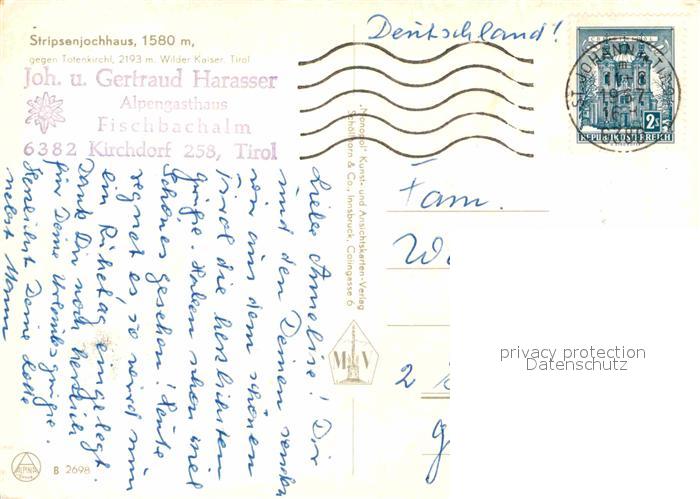 Stripsenjochhaus, 1580 m,
gegen Totenkirchl, 2193 m. Wilder Kaiser, Tirol
Joh. u. Gertraud Harasser
Alpengasthaus
Fischbachalm
6382 Kirchdorf 258, Tirol
Deutschland!
ST. JOHANN
2 S
REPUBLIK ÖSTERREICH
"Monopol" Kunst- und Ansichtskarten-Verlag
Schöllhorn & Co., Innsbruck, Colingasse 6
Liebe Annelise! Dir
und den Deinen senden
wir aus dem schönen
Tirol die herzlichsten
Grüße. Haben schon viel
Schönes gesehen! Heute
regnet es, so wird nun
ein Ruhetag eingelegt.
Dank Dir noch herzlich
für Deine Urlaubsgrüße.
Herzlichst Deine Lotte
nebst Mann
Fam.
W
2
M V
ALPINA
B 2698
privacy protection
Datenschutz